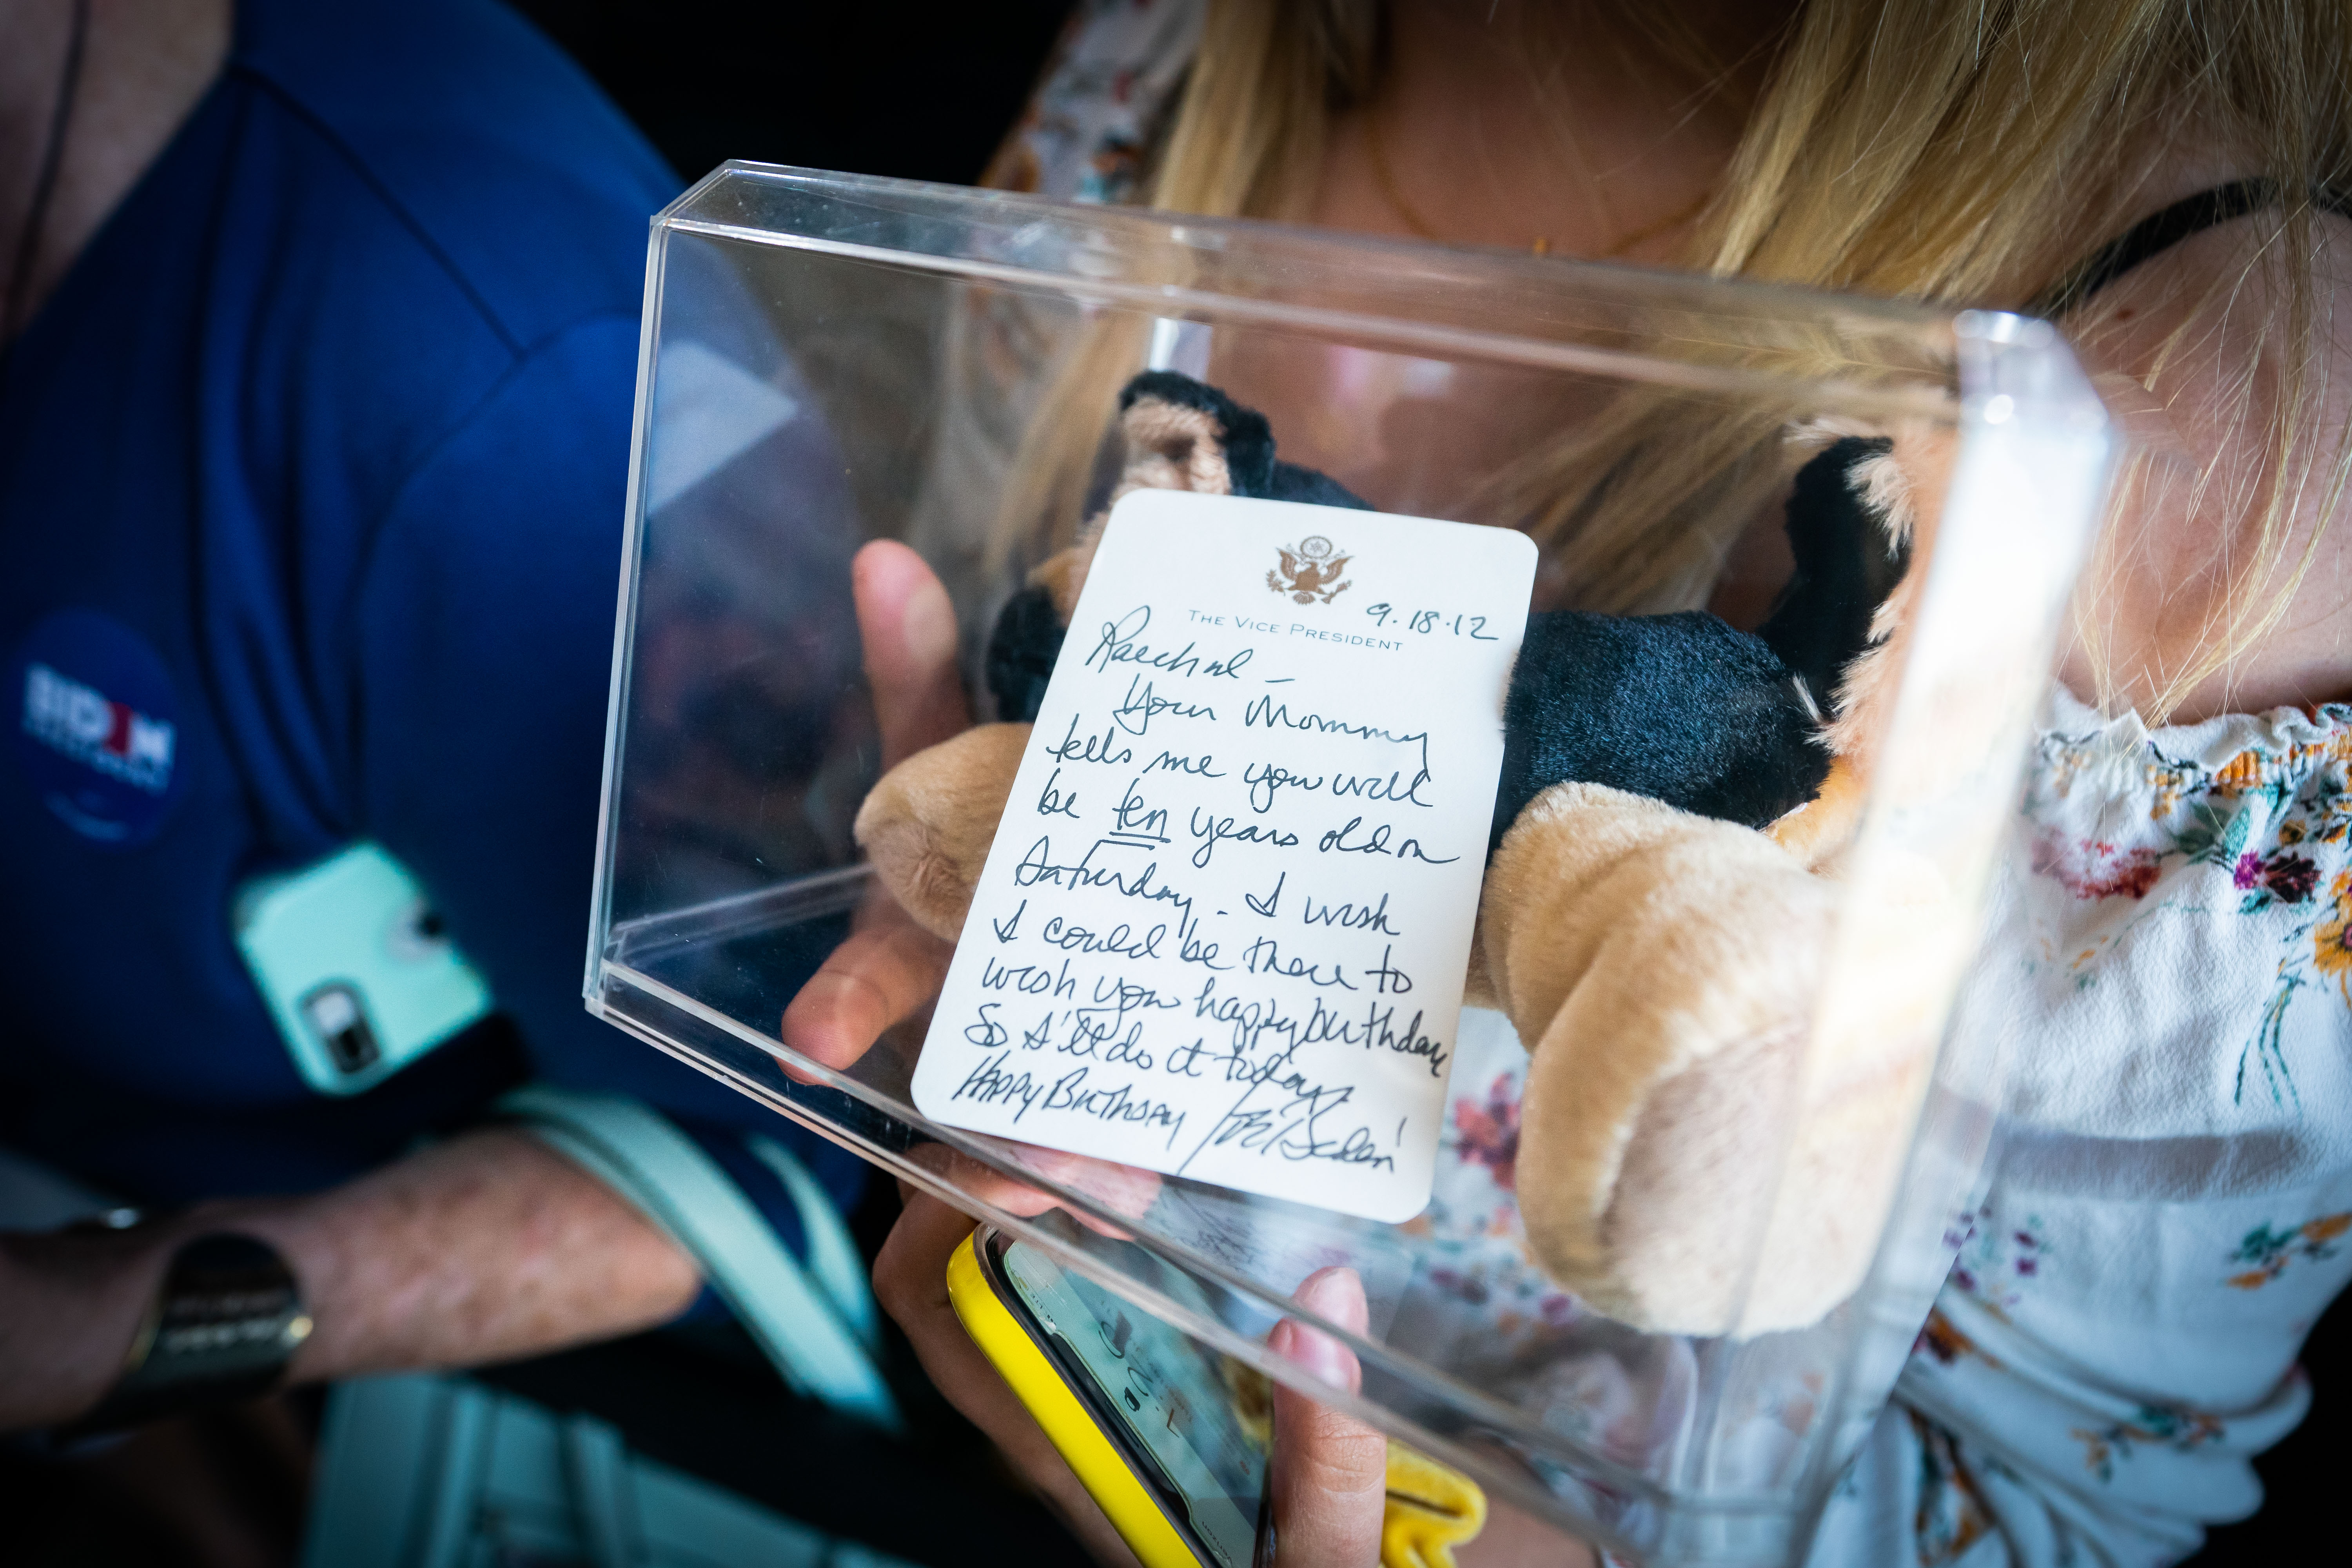 THE VICE PRESIDENT
9.18.12
Raechel –
Your Mommy
tells me you will
be ten years old on
Saturday. - I wish
I could be there to
wish you happy birthday
So I'll do it today
HAPPY BIRTHDAY! Joe Biden
BIDEN